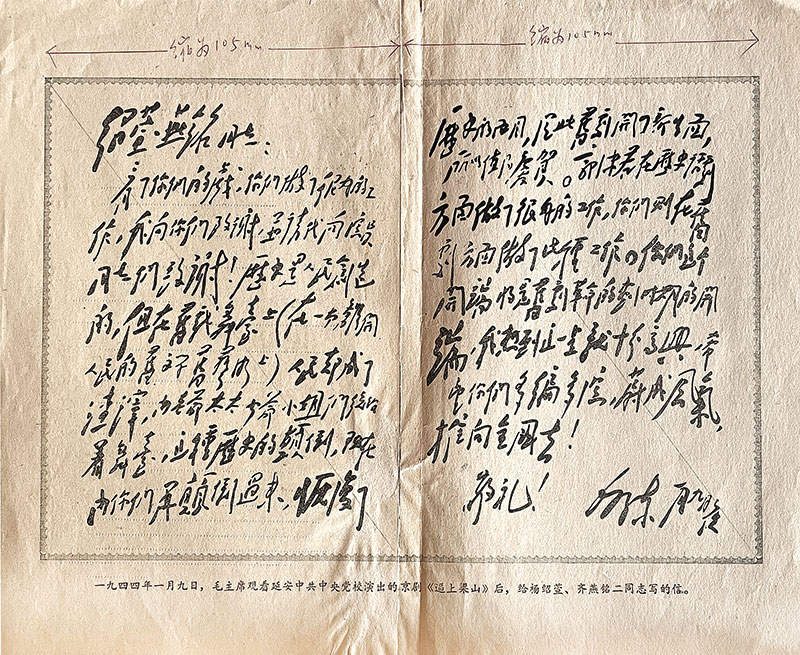 缩为105mm
缩为105mm
绍萱、燕铭同志：
看了你们的戏，你们做了很好的工
作，我向你们致谢，并请代向演员
同志们致谢！歷史是人民創造
的，但在舊戏舞臺上（在一切離開
人民的舊文学舊艺术上）人民却成了
渣滓，由老爷太太少爷小姐们统治
着舞臺，这種歷史的颠倒，现在
由你们再颠倒过来，恢復了
歷史的面目，从此舊剧開了新生面，
所以值得慶賀。郭沫若在歷史话剧
方面做了很好的工作，你们则在舊
剧方面做了此種工作。你们这个
開端将是舊剧革命的划时期的開
端，我想到这一点就十分高興，希
望你们多编多演，蔚成风氣，
推向全国去！
敬礼！ 毛泽东 一月九日夜
一九四四年一月九日，毛主席观看延安中共中央党校演出的京剧《逼上梁山》后，给杨绍萱、齐燕铭二同志写的信。